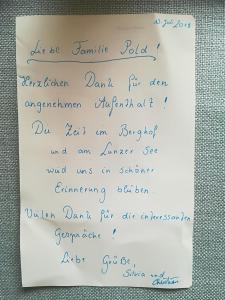 10. Juli 2018
Liebe Familie Pold!
Herzlichen Dank für den
angenehmen Aufenthalt!
Du Zeit im Berghof
und am Lunzer See
wird uns in schöner
Erinnerung bleiben.
Vielen Dank für die interessanten
Gespräche!
Liebe Grüße,
Silvia und
Christian